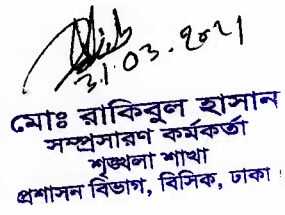 31.03.2021
মোঃ রাকিবুল হাসান
সম্প্রসারণ কর্মকর্তা
শৃঙ্খলা শাখা
প্রশাসন বিভাগ, বিসিক, ঢাকা।